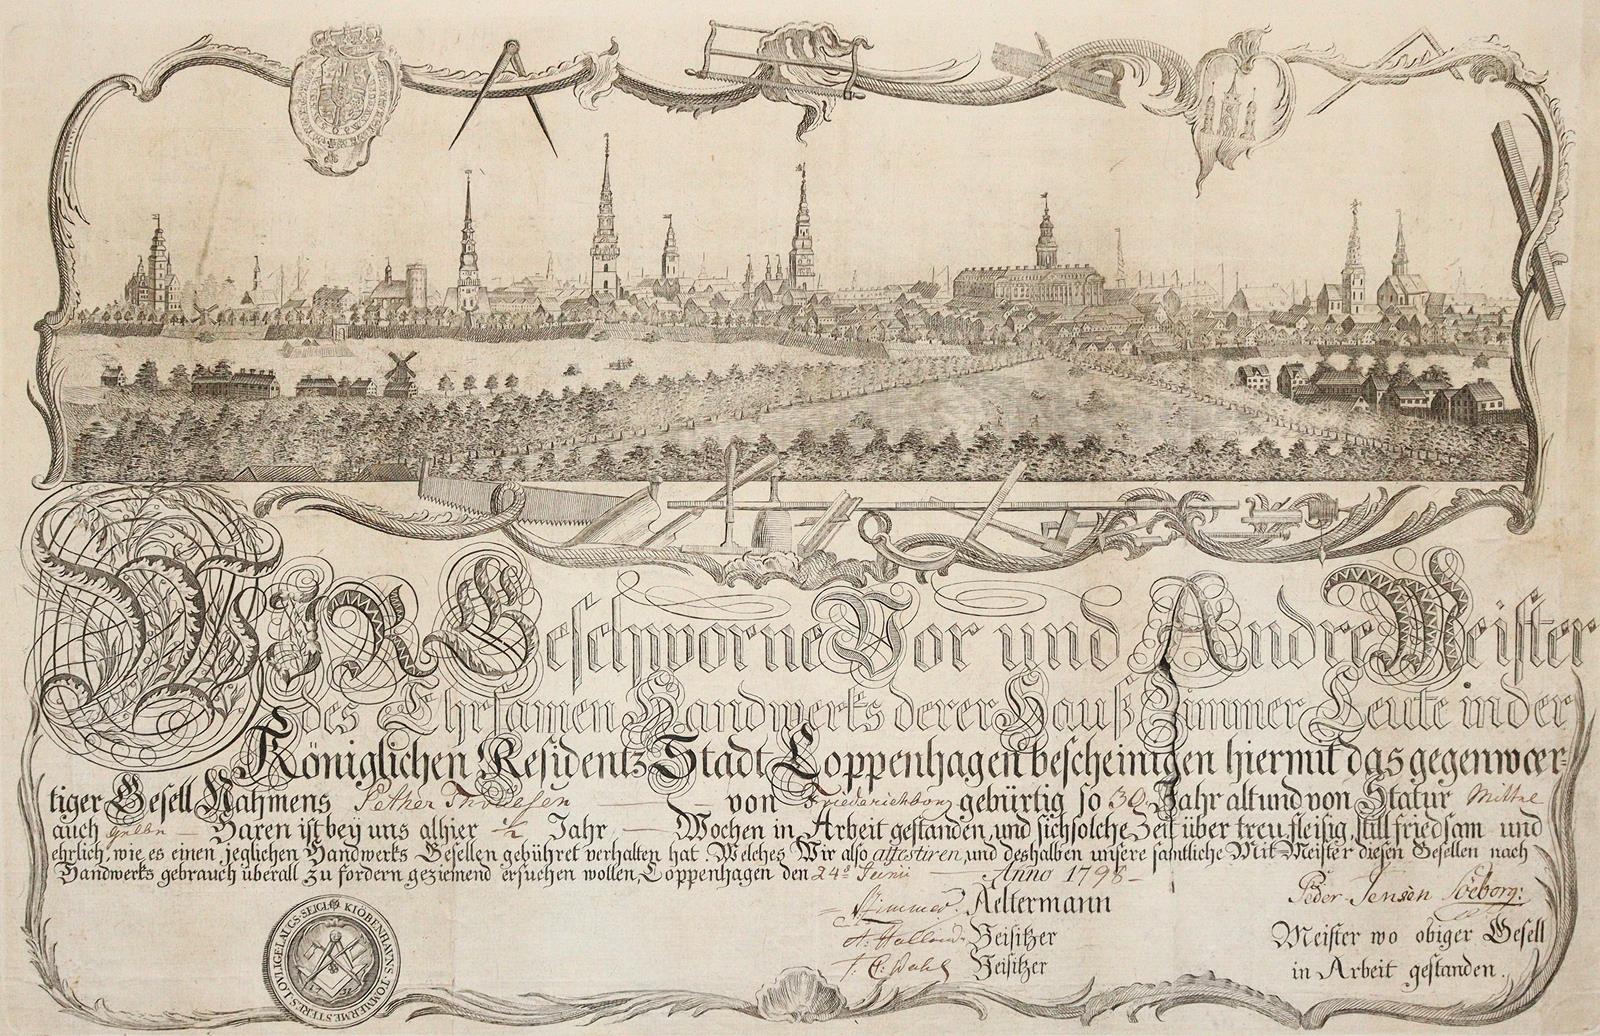 WIR Geschworne Vor und Andre Meister
des Ehrsamen Handwerks derer Hauß Zimmer Leute in der
Königlichen Residentz Stadt Coppenhagen bescheinigen hiermit das gegenwær-
tiger Gesell Nahmens Pether von Friederichborg gebürtig so 30 Jahr alt und von Statur Mittel
auch Haren ist bey uns alhier ½ Jahr Wochen in Arbeit gestanden, und sich solche Zeit über treu, fleisig, still friedsam und
ehrlich, wie es einen jeglichen Handwerks Gesellen gebühret verhalten hat. Welches Wir also attestiren, und deshalben unsere samtliche Mit Meister diesen Gesellen nach
Handwerks gebrauch überall zu fordern geziemend ersuchen wollen, Coppenhagen den 24 Junii Anno 1798
Aeltermann
Beisitzer
Beisitzer
Peder Jensen Söeborg:
Meister wo obiger Gesell
in Arbeit gestanden.
KIÖBENHAVNS TÖMMERMESTERS LOVLIGE LAUGS SEIGL